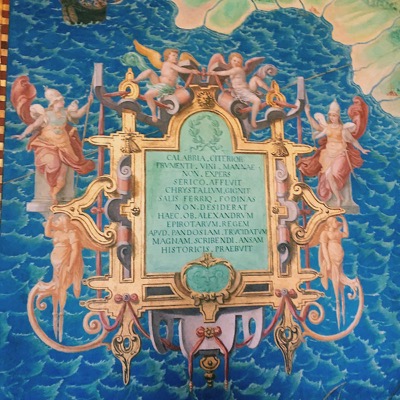 CALABRIA, CITERIOR
FRVMENTI, VINI, MANNAE
NON, EXPERS
SERICO, AFFLVIT
CHRYSTALLVM, GIGNIT
SALIS FERRIQ, FODINAS
NON, DESIDERAT
HAEC, OB, ALEXANDRVM
EPIROTARVM, REGEM
APVD, PANDOSIAM, TRVCIDATVM
MAGNAM, SCRIBENDI, ANSAM
HISTORICIS, PRAEBVIT